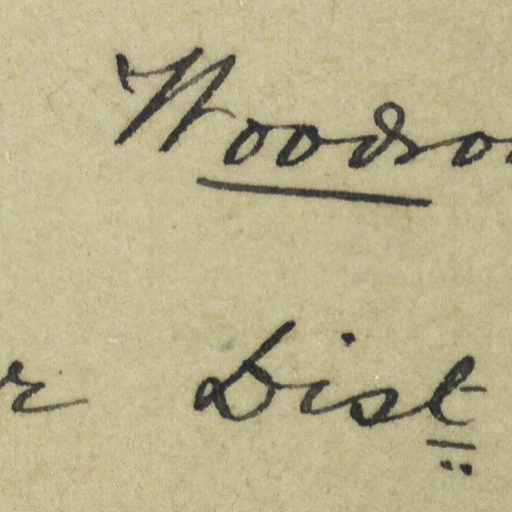 Woodro
r Dist